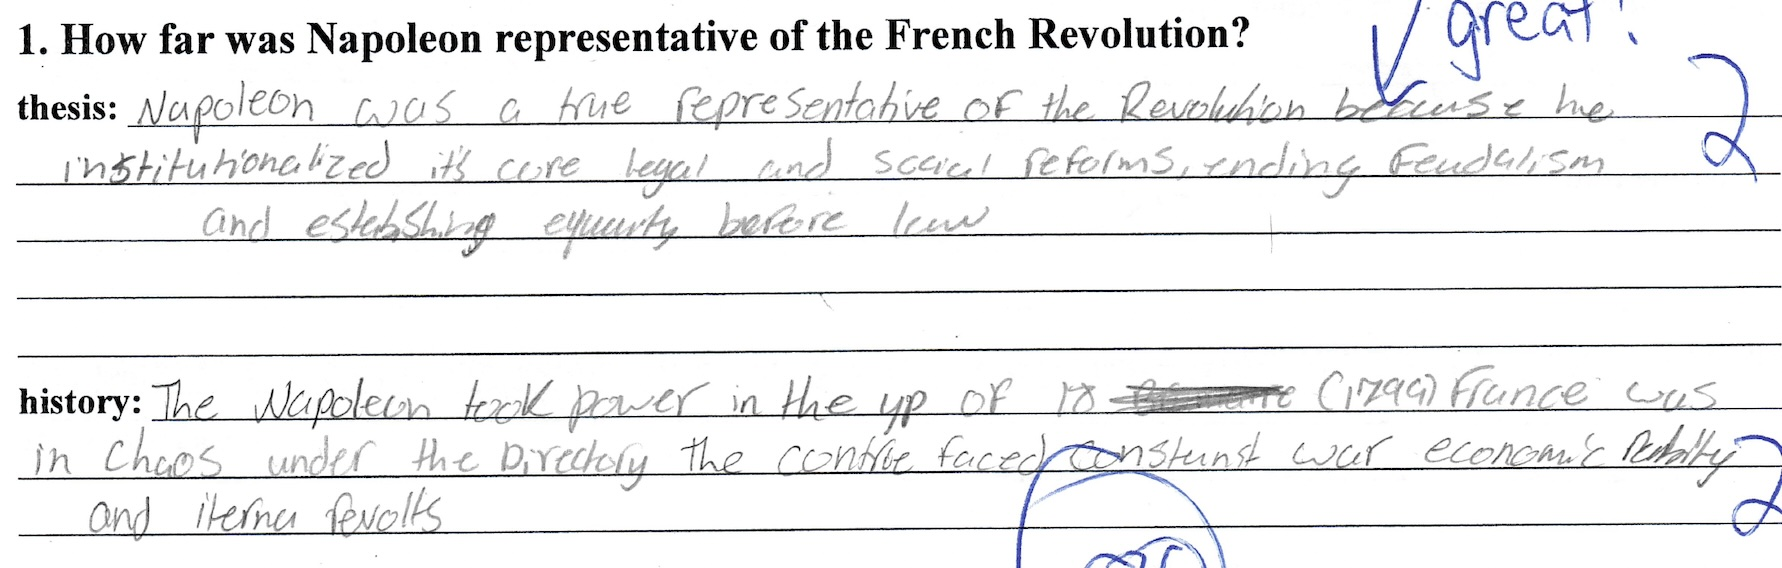 great!
1. How far was Napoleon representative of the French Revolution?
thesis: Napoleon was a true representative of the Revolution because he
2
institutionalized it's core legal and social reforms, ending Feudalism
and before law
history: The Napoleon took power in the yp of 18 (1799) France was
in Chaos under the Directory the faced war economic
and revolts
2